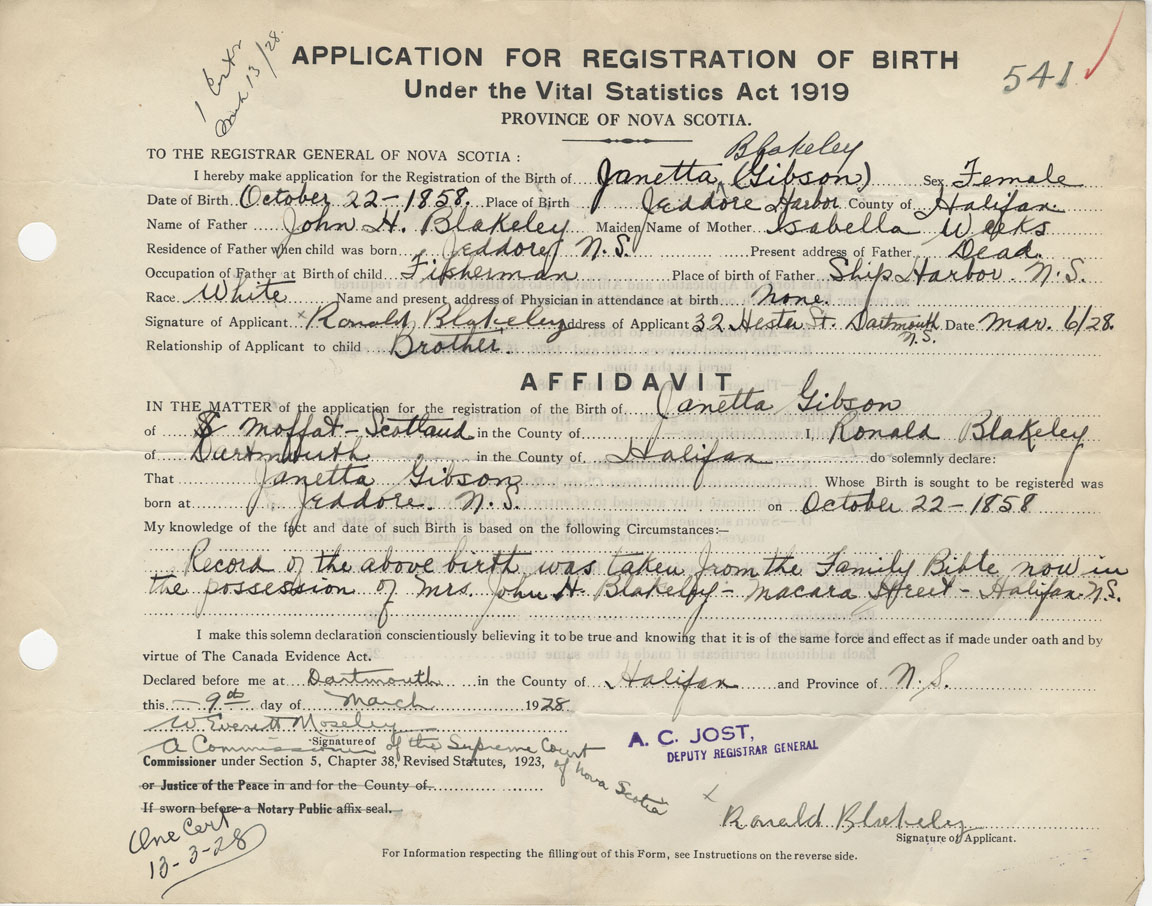 1 Cert
March 13/28.
APPLICATION FOR REGISTRATION OF BIRTH
541
Under the Vital Statistics Act 1919
PROVINCE OF NOVA SCOTIA.
Blakeley
TO THE REGISTRAR GENERAL OF NOVA SCOTIA :
I hereby make application for the Registration of the Birth of Janetta (Gibson) Sex Female
Date of Birth October 22-1858. Place of Birth Jeddore Harbor County of Halifax.
Name of Father John H. Blakeley Maiden Name of Mother Isabella Weeks
Residence of Father when child was born Jeddore, N.S. Present address of Father Dead.
Occupation of Father at Birth of child Fisherman Place of birth of Father Ship Harbor N.S.
Race. White Name and present address of Physician in attendance at birth none.
Signature of Applicant x Ronald Blakeley Address of Applicant 32 Hester St. Dartmouth N.S. Date Mar. 6/28.
Relationship of Applicant to child Brother.
AFFIDAVIT
IN THE MATTER of the application for the registration of the Birth of Janetta Gibson
of Moffat-Scotland in the County of I, Ronald Blakeley
of Dartmouth in the County of Halifax do solemnly declare:
That Janetta Gibson Whose Birth is sought to be registered was
born at Jeddore. N.S. on October 22-1858
My knowledge of the fact and date of such Birth is based on the following Circumstances:—
Record of the above birth was taken from the Family Bible now in
the possession of Mrs. John H. Blakeley - Macara Street - Halifax N.S.
I make this solemn declaration conscientiously believing it to be true and knowing that it is of the same force and effect as if made under oath and by
virtue of The Canada Evidence Act.
Declared before me at Dartmouth in the County of Halifax and Province of N.S.
this 9th day of March 1928
W. Everett Moseley
Signature of
A Commissioner of the Supreme Court of Nova Scotia
A. C. JOST,
DEPUTY REGISTRAR GENERAL
Commissioner under Section 5, Chapter 38, Revised Statutes, 1923,
or Justice of the Peace in and for the County of
If sworn before a Notary Public affix seal.
x Ronald Blakeley
Signature of Applicant.
One Cert
13-3-28
For Information respecting the filling out of this Form, see Instructions on the reverse side.